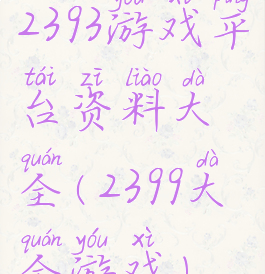 yóu xì píng
2393游戏平
tái zī liào dà
台资料大
quán dà
全(2399大
quán yóu xì
全游戏)